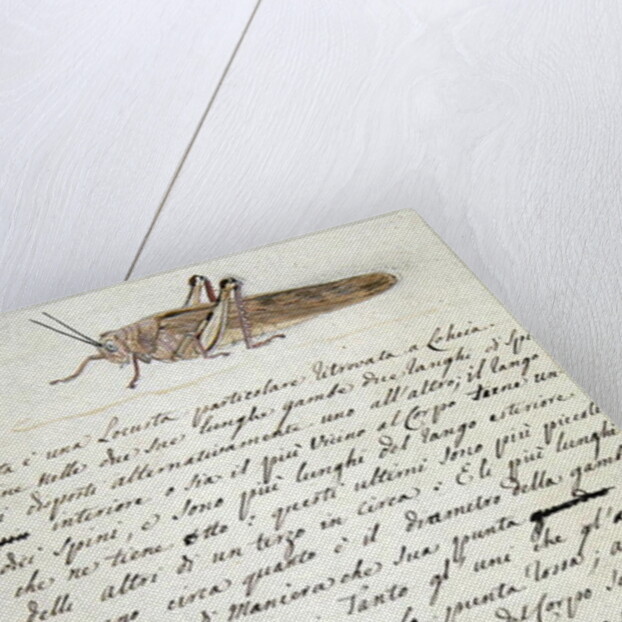 ta è una Locusta particolare ritrovata a Loheia.
ne nelle due sue lunghe gambe due ranghi di Spi
disposti alternativamente uno all'altro; il rango
interiore o sia il più vicino al Corpo terne un
dici Spini, e sono più lunghi del rango esteriore
che ne tiene otto: questi ultimi sono più piccoli
delle altri di un terzo in circa: E li più lunghi
ano circa quanto è il diametro della gamb
di Maniera che sua punta
Tanto gl'uni che gl'a
punta rossa; a
del Corpo s